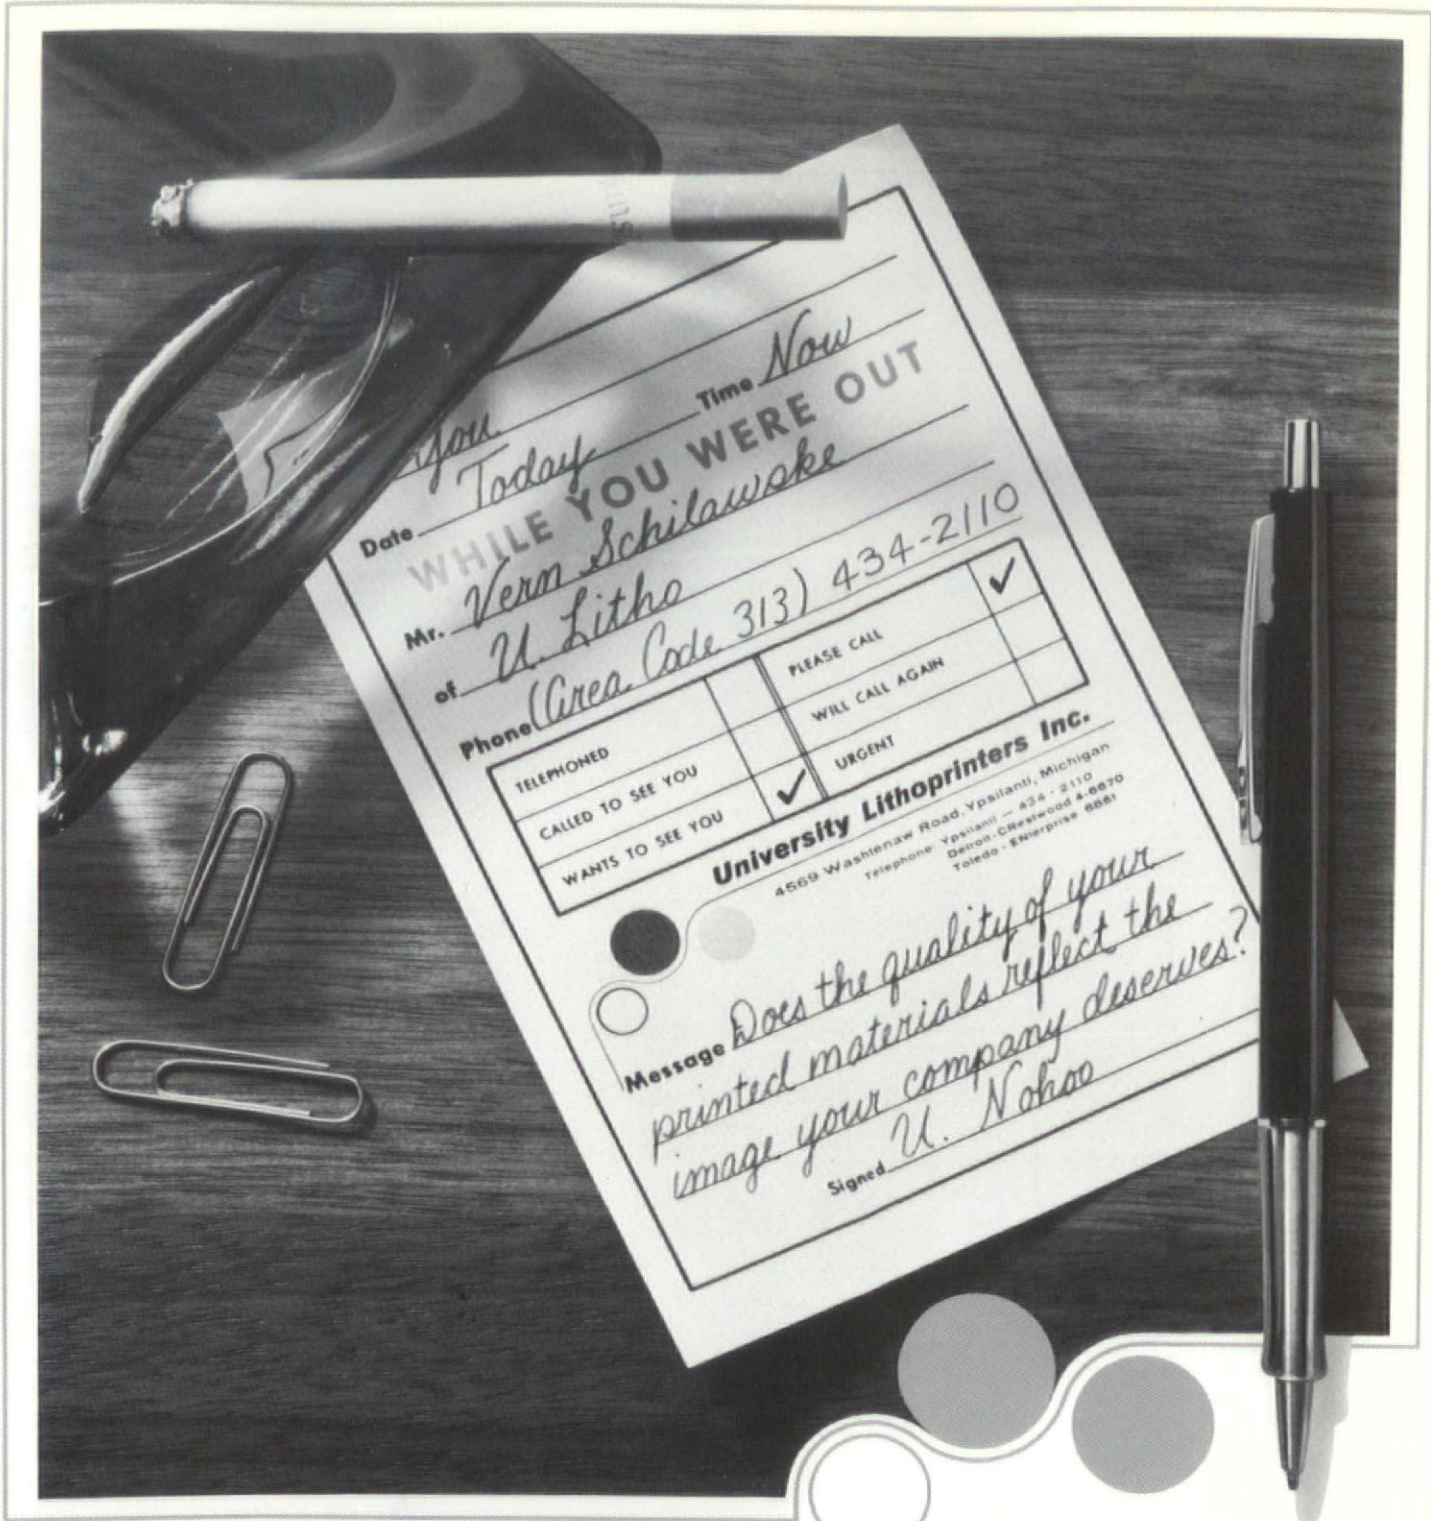 You
Date Today Time Now
WHILE YOU WERE OUT
Mr. Vern Schilawske
of U. Litho
Phone (Area Code 313) 434-2110
TELEPHONED PLEASE CALL ✓
CALLED TO SEE YOU WILL CALL AGAIN
WANTS TO SEE YOU ✓ URGENT
University Lithoprinters Inc.
4569 Washtenaw Road, Ypsilanti, Michigan
Telephone: Ypsilanti — 434 - 2110
Detroit - CRestwood 4-6670
Toledo - ENterprise 6661
Message Does the quality of your
printed materials reflect the
image your company deserves?
Signed U. Nohoo